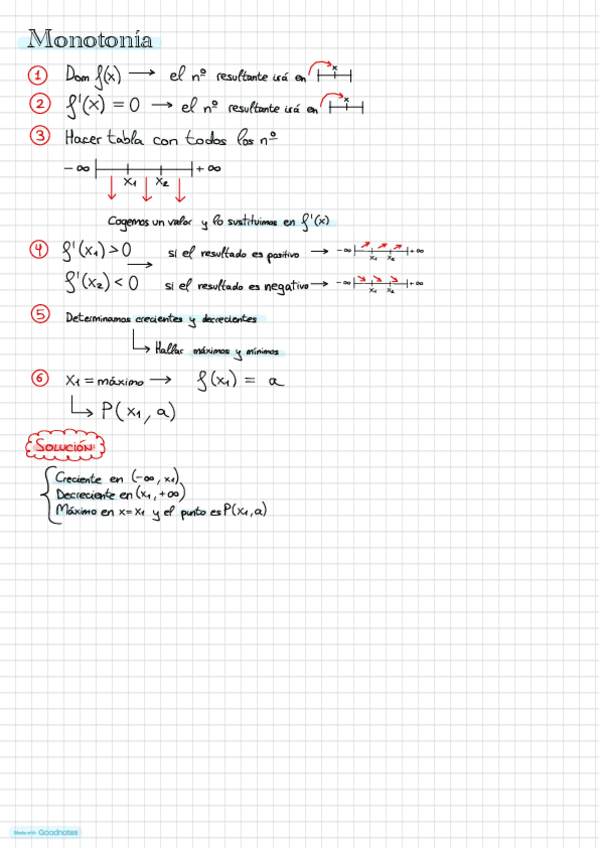 Monotonía
① Dom f(x) → el nº resultante irá en x
② f'(x) = 0 → el nº resultante irá en x
③ Hacer tabla con todos los nº
-∞ x₁ x₂ +∞
Cogemos un valor y lo sustituimos en f'(x)
④ f'(x₁) > 0 → si el resultado es positivo → -∞ x₁ x₂ +∞
f'(x₂) < 0 si el resultado es negativo → -∞ x₁ x₂ +∞
⑤ Determinamos crecientes y decrecientes
↳ Hallar máximos y mínimos
⑥ x₁ = máximo → f(x₁) = a
↳ P(x₁, a)
SOLUCIÓN:
Creciente en (-∞, x₁)
Decreciente en (x₁, +∞)
Máximo en x=x₁ y el punto es P(x₁, a)
Made with Goodnotes